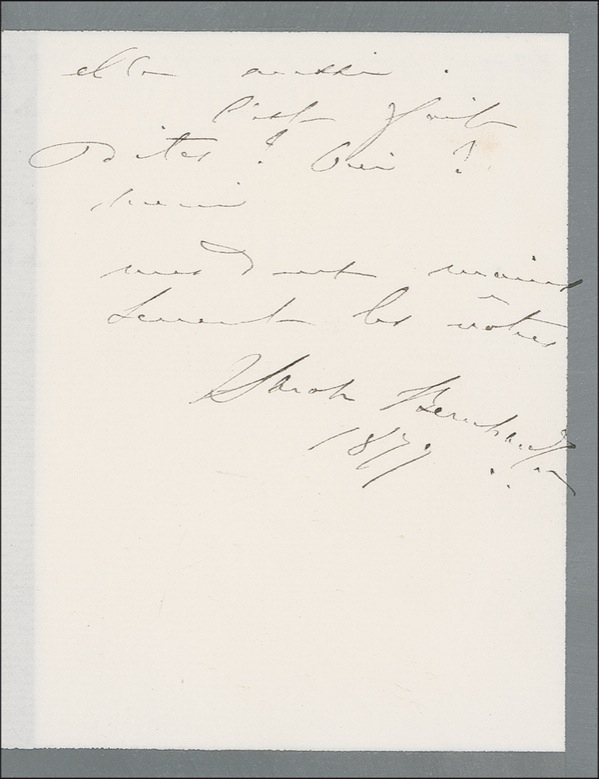 elle aussi.
C'est fait
Dites ? Oui ?
merci
mes deux mains
serrent les vôtres
Sarah Bernhardt
1879